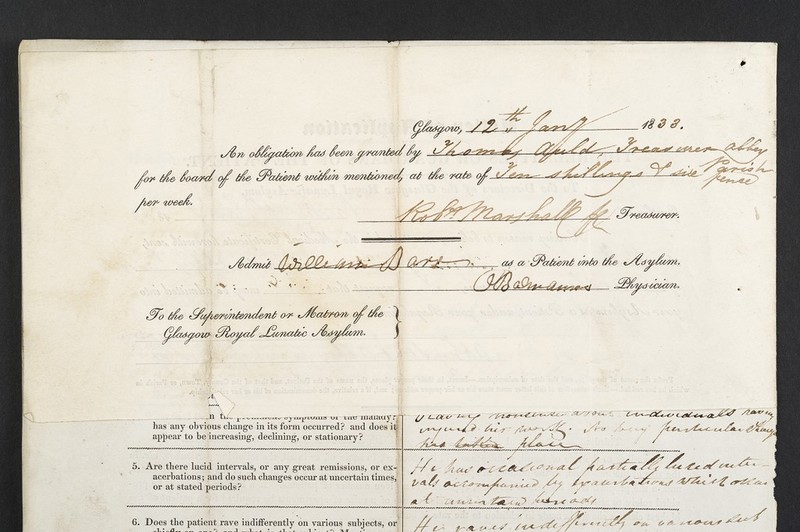 Glasgow, 12th Jany 1833.
An obligation has been granted by Thomas Auld, Treasurer Abbey Parish
for the board of the Patient within mentioned, at the rate of Ten shillings & six pence
per week.
Robt Marshall Treasurer.
Admit William Barr as a Patient into the Asylum.
Physician.
To the Superintendent or Matron of the
Glasgow Royal Lunatic Asylum.
symptoms of the malady?
has any obvious change in its form occurred? and does it
appear to be increasing, declining, or stationary?
nonsense about individuals having
injured his work. No very particular change
has taken place
5. Are there lucid intervals, or any great remissions, or ex-
acerbations; and do such changes occur at uncertain times,
or at stated periods?
He has occasional partially lucid inter-
vals accompanied by exacerbations which occur
at uncertain periods
6. Does the patient rave indifferently on various subjects, or
He raves indifferently on various sub